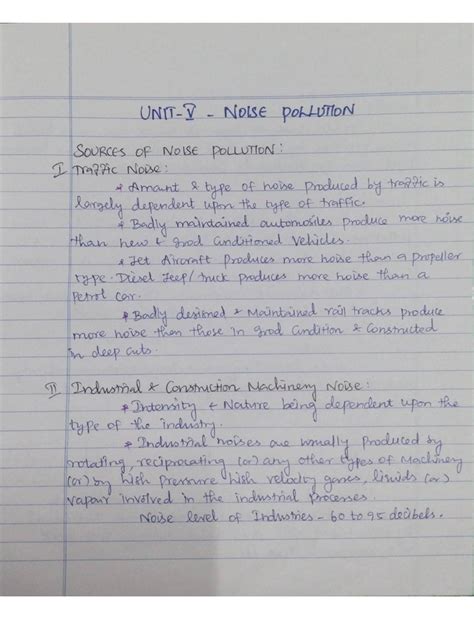 UNIT-V - NOISE POLLUTION
SOURCES OF NOISE POLLUTION:
I Traffic Noise:
* Amount & type of noise produced by traffic is
largely dependent upon the type of traffic.
* Badly maintained automobiles produce more noise
than new & good conditioned vehicles.
* Jet Aircraft produces more noise than a propeller
type. Diesel Jeep/truck produces more noise than a
petrol car.
* Badly designed & Maintained rail tracks produce
more noise than those in good condition & Constructed
in deep cuts.
II Industrial & Construction Machinery Noise:
* Intensity & Nature being dependent upon the
type of the industry.
* Industrial noises are usually produced by
rotating, reciprocating (or) any other types of Machinery
(or) by high pressure high velocity gases, liquids (or)
vapour involved in the industrial processes.
Noise level of Industries - 60 to 95 decibels.